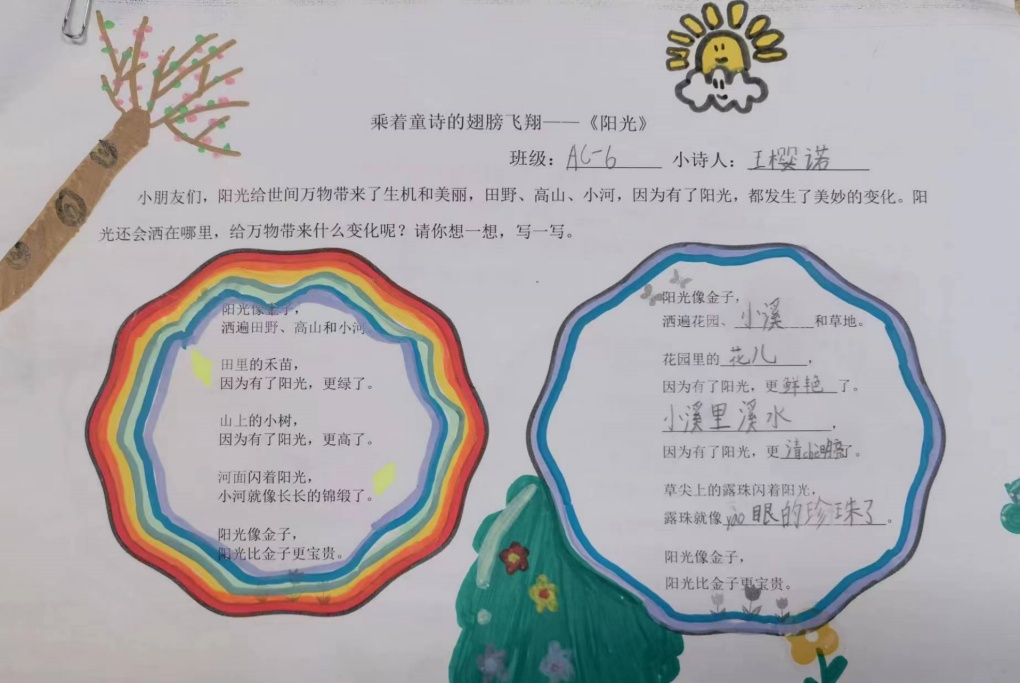 乘着童诗的翅膀飞翔——《阳光》
班级：AC-6 小诗人：王樱诺
小朋友们，阳光给世间万物带来了生机和美丽，田野、高山、小河，因为有了阳光，都发生了美妙的变化。阳
光还会洒在哪里，给万物带来什么变化呢？请你想一想，写一写。
阳光像金子，
洒遍田野、高山和小河
田里的禾苗，
因为有了阳光，更绿了。
山上的小树，
因为有了阳光，更高了。
河面闪着阳光，
小河就像长长的锦缎了。
阳光像金子，
阳光比金子更宝贵。
阳光像金子，
洒遍花园、小溪和草地。
花园里的花儿，
因为有了阳光，更鲜艳了。
小溪里溪水，
因为有了阳光，更清che明亮了。
草尖上的露珠闪着阳光，
露珠就像yao眼的珍珠了。
阳光像金子，
阳光比金子更宝贵。